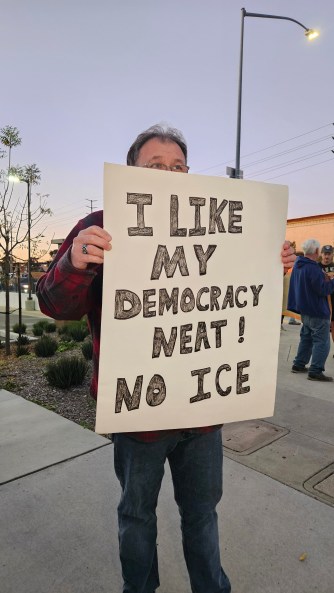 I LIKE
MY
DEMOCRACY
NEAT!
NO ICE